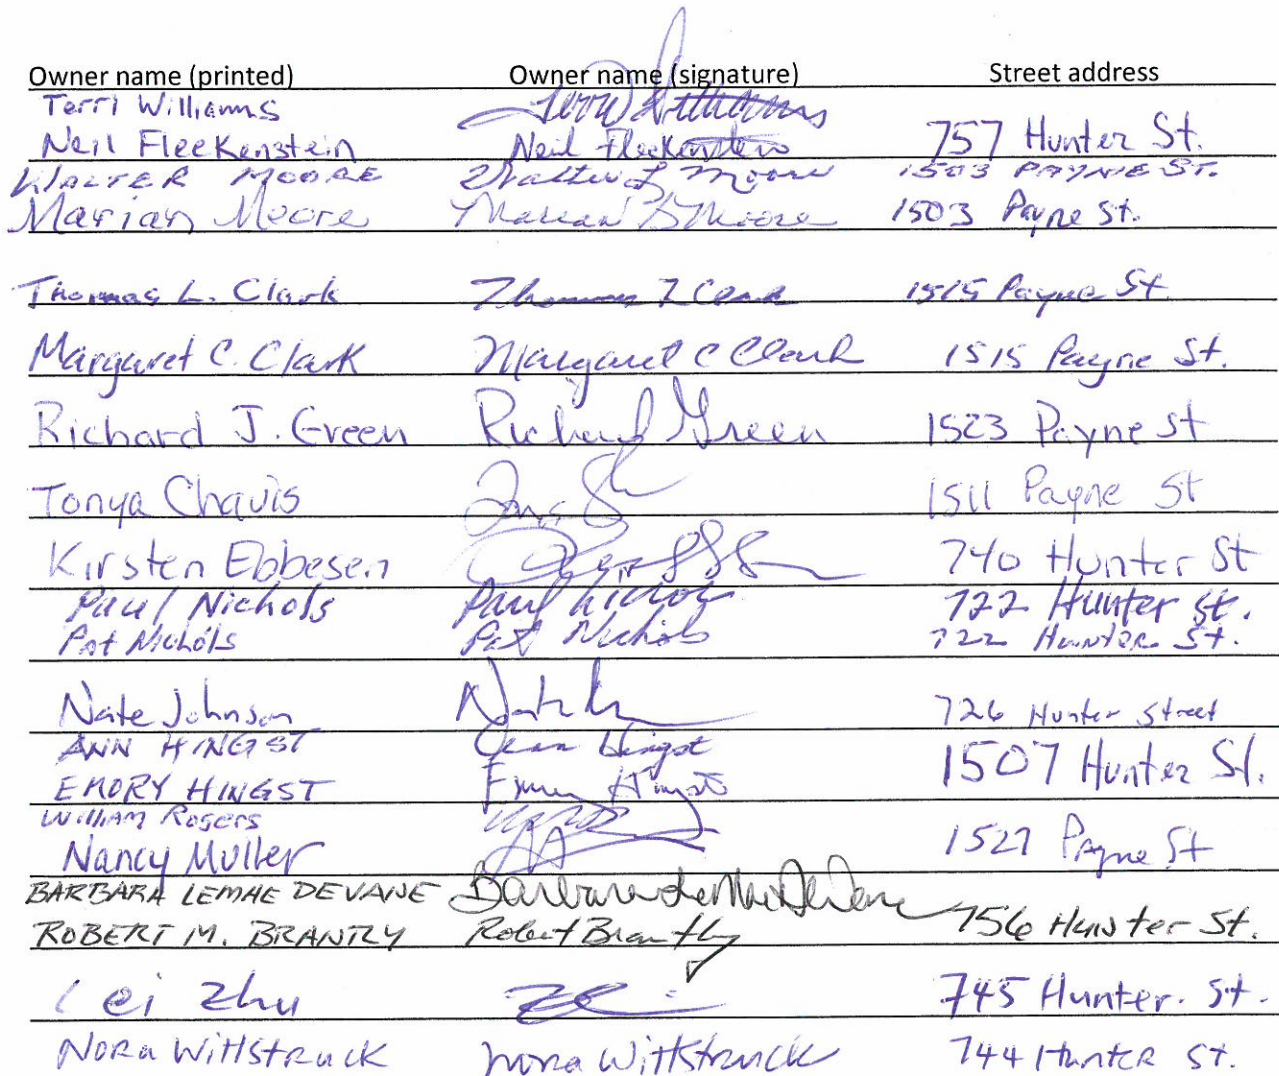 Owner name (printed) Owner name (signature) Street address
Terri Williams Terri Williams
Neil Fleckenstein Neil Fleckenstein 757 Hunter St.
WALTER MOORE Walter L. Moore 1503 PAYNE ST.
Marian Moore Marian B Moore 1503 Payne St.
Thomas L. Clark Thomas L Clark 1515 Payne St.
Margaret C. Clark Margaret C Clark 1515 Payne St.
Richard J. Green Richard Green 1523 Payne St
Tonya Chavis 1511 Payne St
Kirsten Ebbesen 740 Hunter St
Paul Nichols Paul Nichols 722 Hunter St.
Pat Nichols Pat Nichols 722 Hunter St.
Nate Johnson 726 Hunter Street
ANN HINGST Ann Hingst 1507 Hunter St.
EMORY HINGST Emory Hingst
William Rogers
Nancy Muller 1527 Payne St
BARBARA LEMAE DEVANE Barbara DeVane
ROBERT M. BRANTLY Robert Brantly 756 Hunter St.
Lei Zhu 745 Hunter. St.
Nora Wittstruck Nora Wittstruck 744 Hunter St.